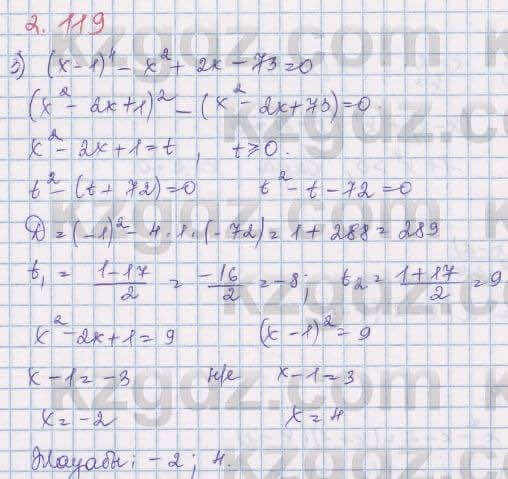 2.119
3) (x-1)⁴ - x² + 2x - 73 = 0
(x² - 2x + 1)² - (x² - 2x + 73) = 0.
x² - 2x + 1 = t, t ≥ 0.
t² - (t + 72) = 0 t² - t - 72 = 0
D = (-1)² - 4·1·(-72) = 1 + 288 = 289
t₁ = (1-17)/2 = -16/2 = -8; t₂ = (1+17)/2 = 9
x² - 2x + 1 = 9 (x - 1)² = 9
x - 1 = -3 не x - 1 = 3
x = -2 x = 4
Жауабы: -2; 4.
kzgdz.com